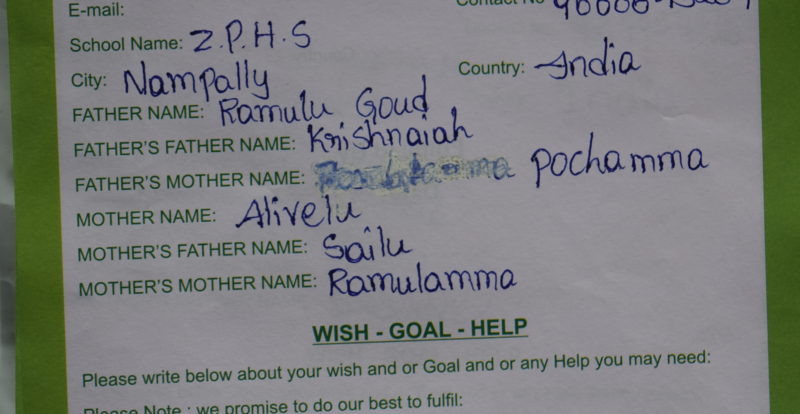 E-mail:
Contact No
School Name: Z.P.H.S
City: Nampally Country: India
FATHER NAME: Ramulu Goud
FATHER'S FATHER NAME: Krishnaiah
FATHER'S MOTHER NAME: Pochamma
MOTHER NAME: Alivelu
MOTHER'S FATHER NAME: Sailu
MOTHER'S MOTHER NAME: Ramulamma
WISH - GOAL - HELP
Please write below about your wish and or Goal and or any Help you may need:
Please Note : we promise to do our best to fulfil: